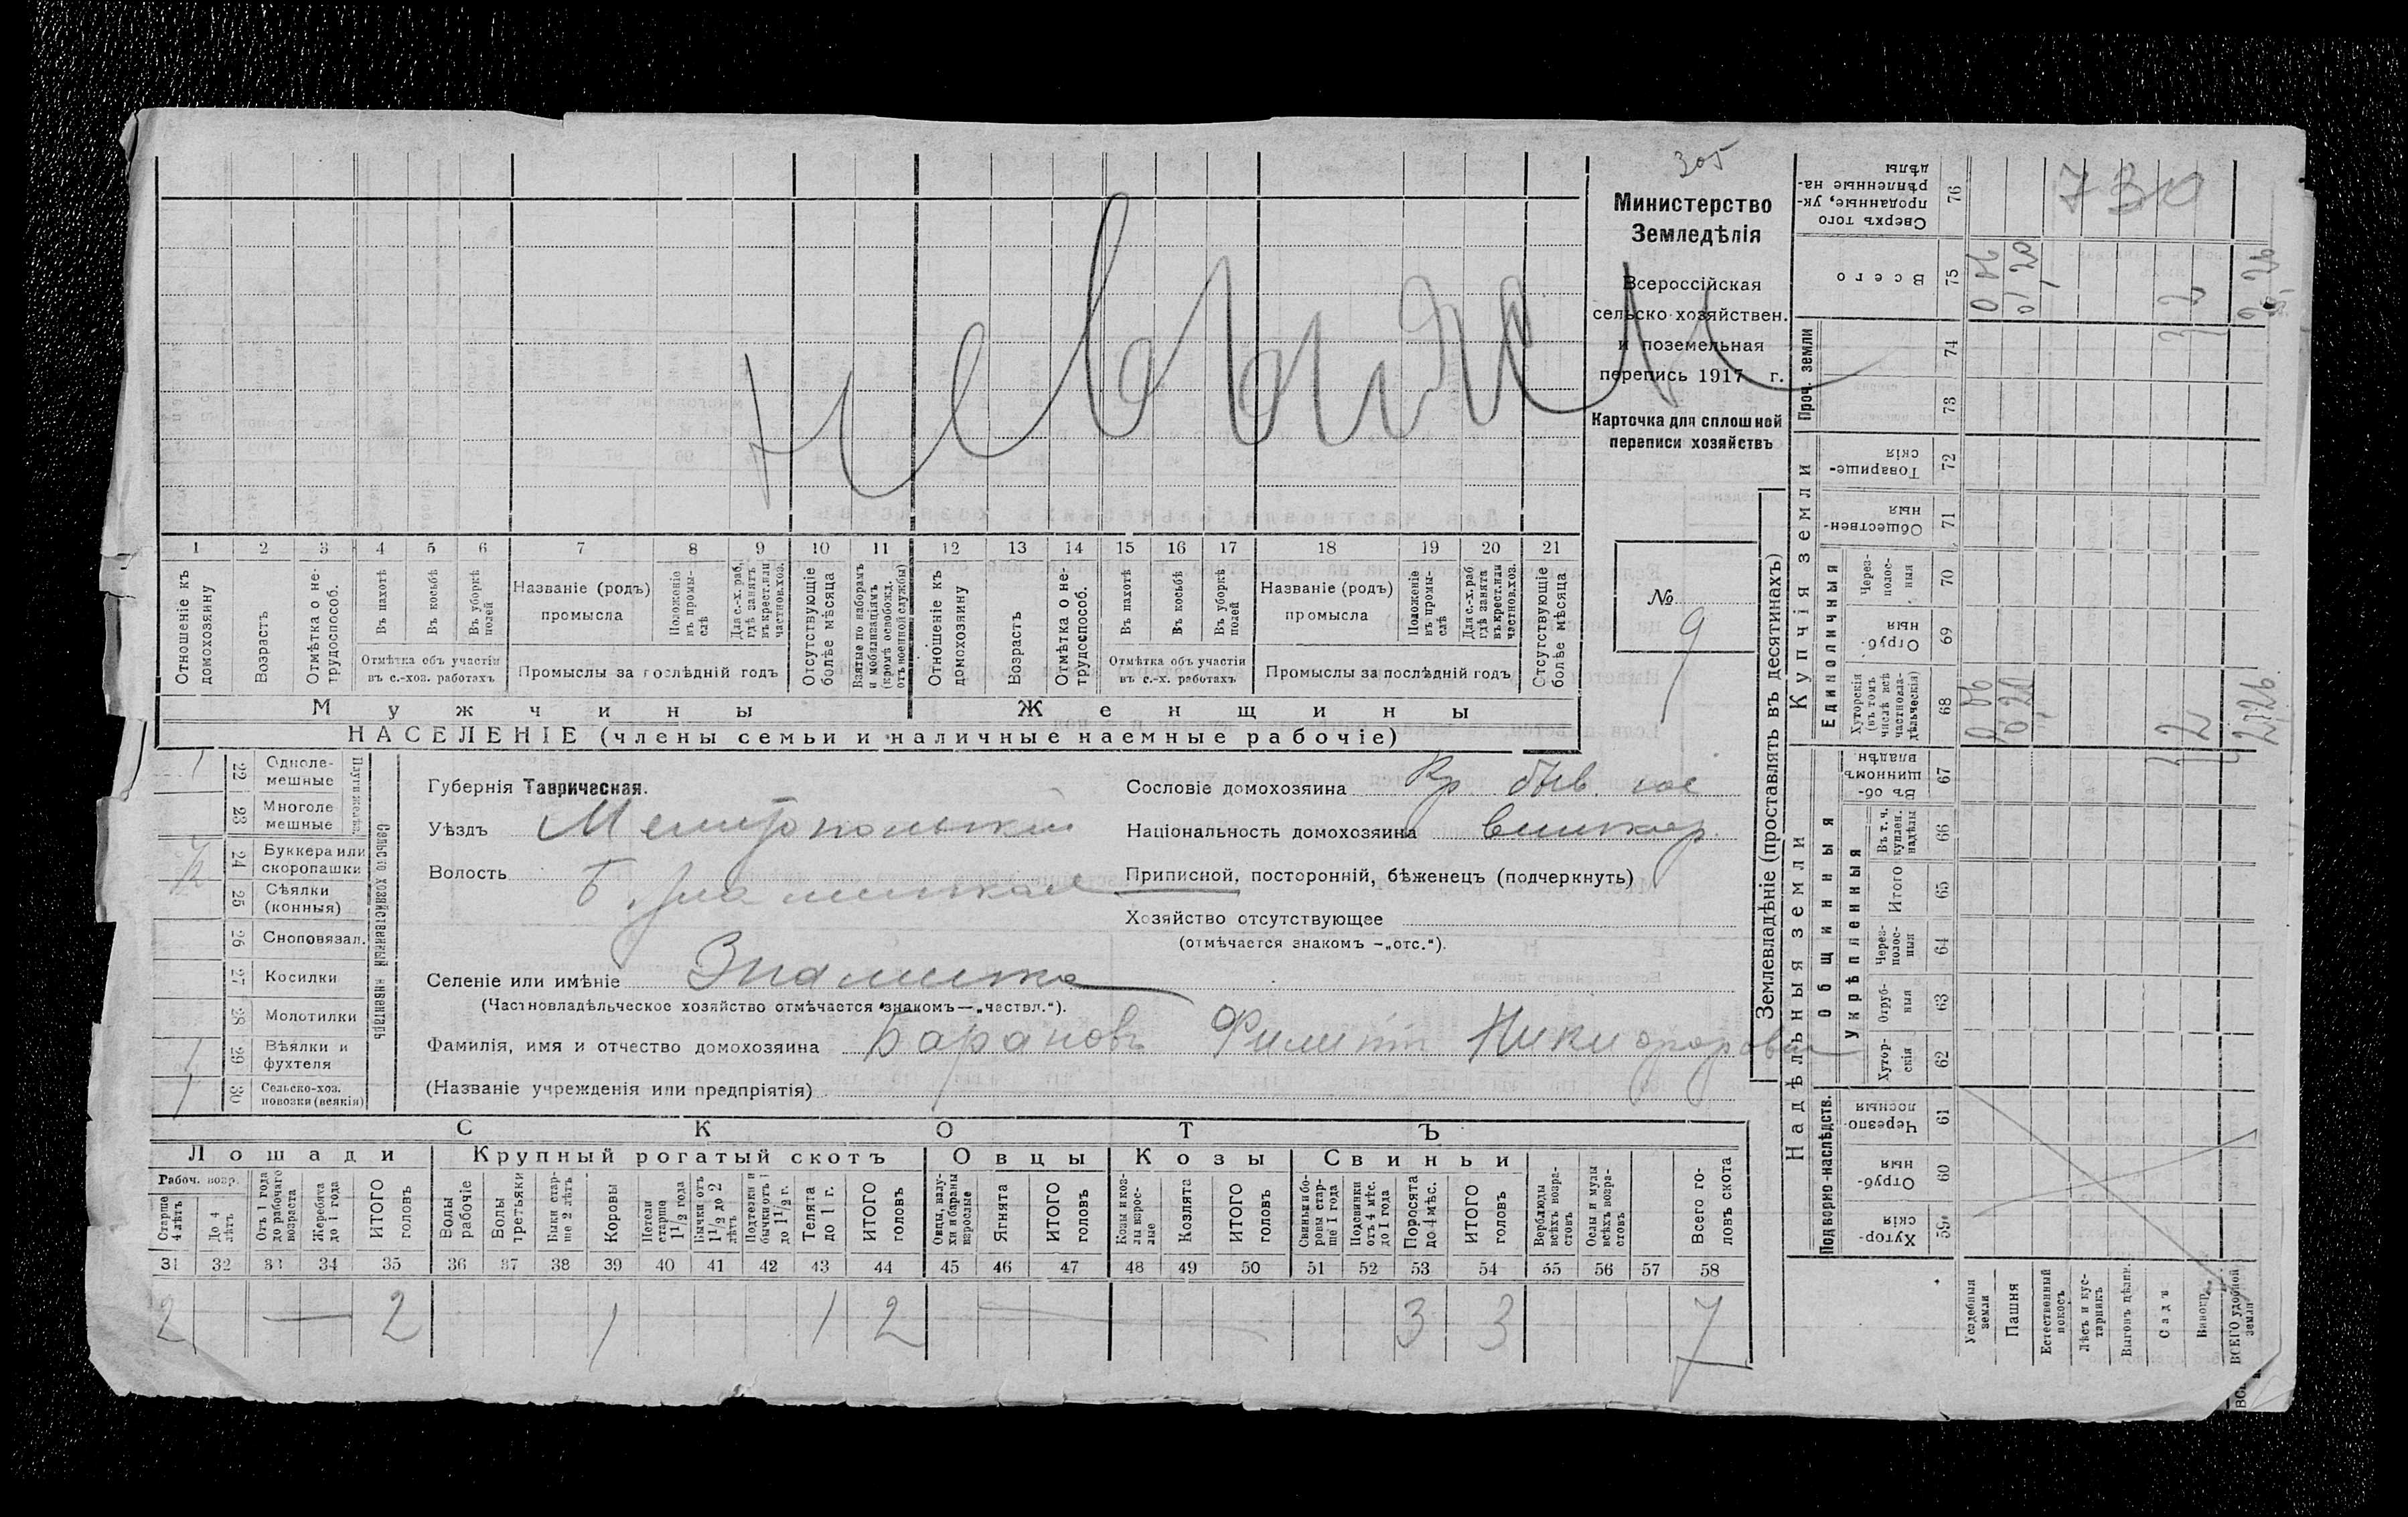 305
Министерство
Земледѣлія
Всероссійская
сельско-хозяйствен.
и поземельная
перепись 1917 г.
Карточка для сплошной
переписи хозяйствъ
№
9
1 2 3 4 5 6 7 8 9 10 11 12 13 14 15 16 17 18 19 20 21
Отношеніе къ домохозяину
Возрастъ
Отмѣтка о не-трудоспособ.
Въ пахотѣ
Въ косьбѣ
Въ уборкѣ полей
Отмѣтка объ участіи
въ с.-хоз. работахъ
Названіе (родъ)
промысла
Положеніе въ промы-слѣ
Для с.-х. раб. гдѣ занятъ въ крест. или частнов. хоз.
Промыслы за послѣдній годъ
Отсутствующіе болѣе мѣсяца
Взятые по наборамъ и мобилизаціямъ (кромѣ освобожд. отъ военной службы)
Отношеніе къ домохозяину
Возрастъ
Отмѣтка о не-трудоспособ.
Въ пахотѣ
Въ косьбѣ
Въ уборкѣ полей
Отмѣтка объ участіи
въ с.-х. работахъ
Названіе (родъ)
промысла
Положеніе въ промы-слѣ
Для с.-х. раб гдѣ занята въ крест. или частнов. хоз.
Промыслы за послѣдній годъ
Отсутствующіе болѣе мѣсяца
Мужчины Женщины
НАСЕЛЕНІЕ (члены семьи и наличные наемные рабочіе)
1 22 Одноле-мешные
23 Многоле мешные
Плуги желѣз.
24 Буккера или скоропашки
25 Сѣялки (конныя)
26 Сноповязал.
27 Косилки
28 Молотилки
1 29 Вѣялки и фухтеля
1 30 Сельско-хоз. повозки (всякія)
Сельско хозяйственный инвентарь
Губернія Таврическая.
Уѣздъ Мелитопольскій
Волость
Селеніе или имѣніе Знаменка
(Частновладѣльческое хозяйство отмѣчается знакомъ—„частвл.“).
Фамилія, имя и отчество домохозяина Барановъ Филиппъ Никифоровъ
(Названіе учрежденія или предпріятія)
Сословіе домохозяина Кр быв. гос
Національность домохозяина великор.
Приписной, посторонній, бѣженецъ (подчеркнуть)
Хозяйство отсутствующее
(отмѣчается знакомъ —„отс.“).
СКОТЪ
Лошади Крупный рогатый скотъ Овцы Козы Свиньи
Рабоч. возр.
Старше 4 лѣтъ
До 4 лѣтъ
Отъ 1 года до рабочаго возраста
Жеребята до 1 года
ИТОГО головъ
Волы рабочіе
Волы третьяки
Быки стар-ше 2 лѣтъ
Коровы
Нетели старше 1 1/2 года
Бычки отъ 1 1/2 до 2 лѣтъ
Подтелки и бычки отъ 1 до 1 1/2 г.
Телята до 1 г.
ИТОГО головъ
Овцы, валу-хи и бараны взрослые
Ягнята
ИТОГО головъ
Козы и коз-лы взрос-лые
Козлята
ИТОГО головъ
Свиньи и бо-ровы стар-ше 1 года
Подсвинки отъ 4 мѣс. до 1 года
Поросята до 4 мѣс.
ИТОГО головъ
Верблюды всѣхъ возра-стовъ
Ослы и мулы всѣхъ возра-стовъ
Всего го-ловъ скота
31 32 33 34 35 36 37 38 39 40 41 42 43 44 45 46 47 48 49 50 51 52 53 54 55 56 57 58
2 — 2 1 1 2 — 3 3 7
Землевладѣніе (проставлять въ десятинахъ)
Надѣльныя земли Купчія земли Проч. земли
Подворно-наслѣдств. Общинныя Единоличныя
Укрѣпленныя
Хутор-скія 59
Отруб-ныя 60
Черезпо-лосныя 61
Хутор-скія 62
Отруб-ныя 63
Через-полос-ныя 64
Итого 65
Въ т. ч. куплен. надѣлы 66
Въ об-щинномъ владѣн. 67
Хуторскія (въ томъ числѣ всѣ частновла-дѣльческія) 68
Отруб-ныя 69
Через-полос-ныя 70
Обществен-ныя 71
Товарище-скія 72
73
74
Всего 75
Сверхъ того проданные, ук-рѣпленные на-дѣлы 76
730
Усадебныя земли
Пашня
Естественный покосъ
Лѣсъ и кус-тарникъ
Выгонъ цѣлин.
Садъ
Виногр.
ВСЕГО удобной земли